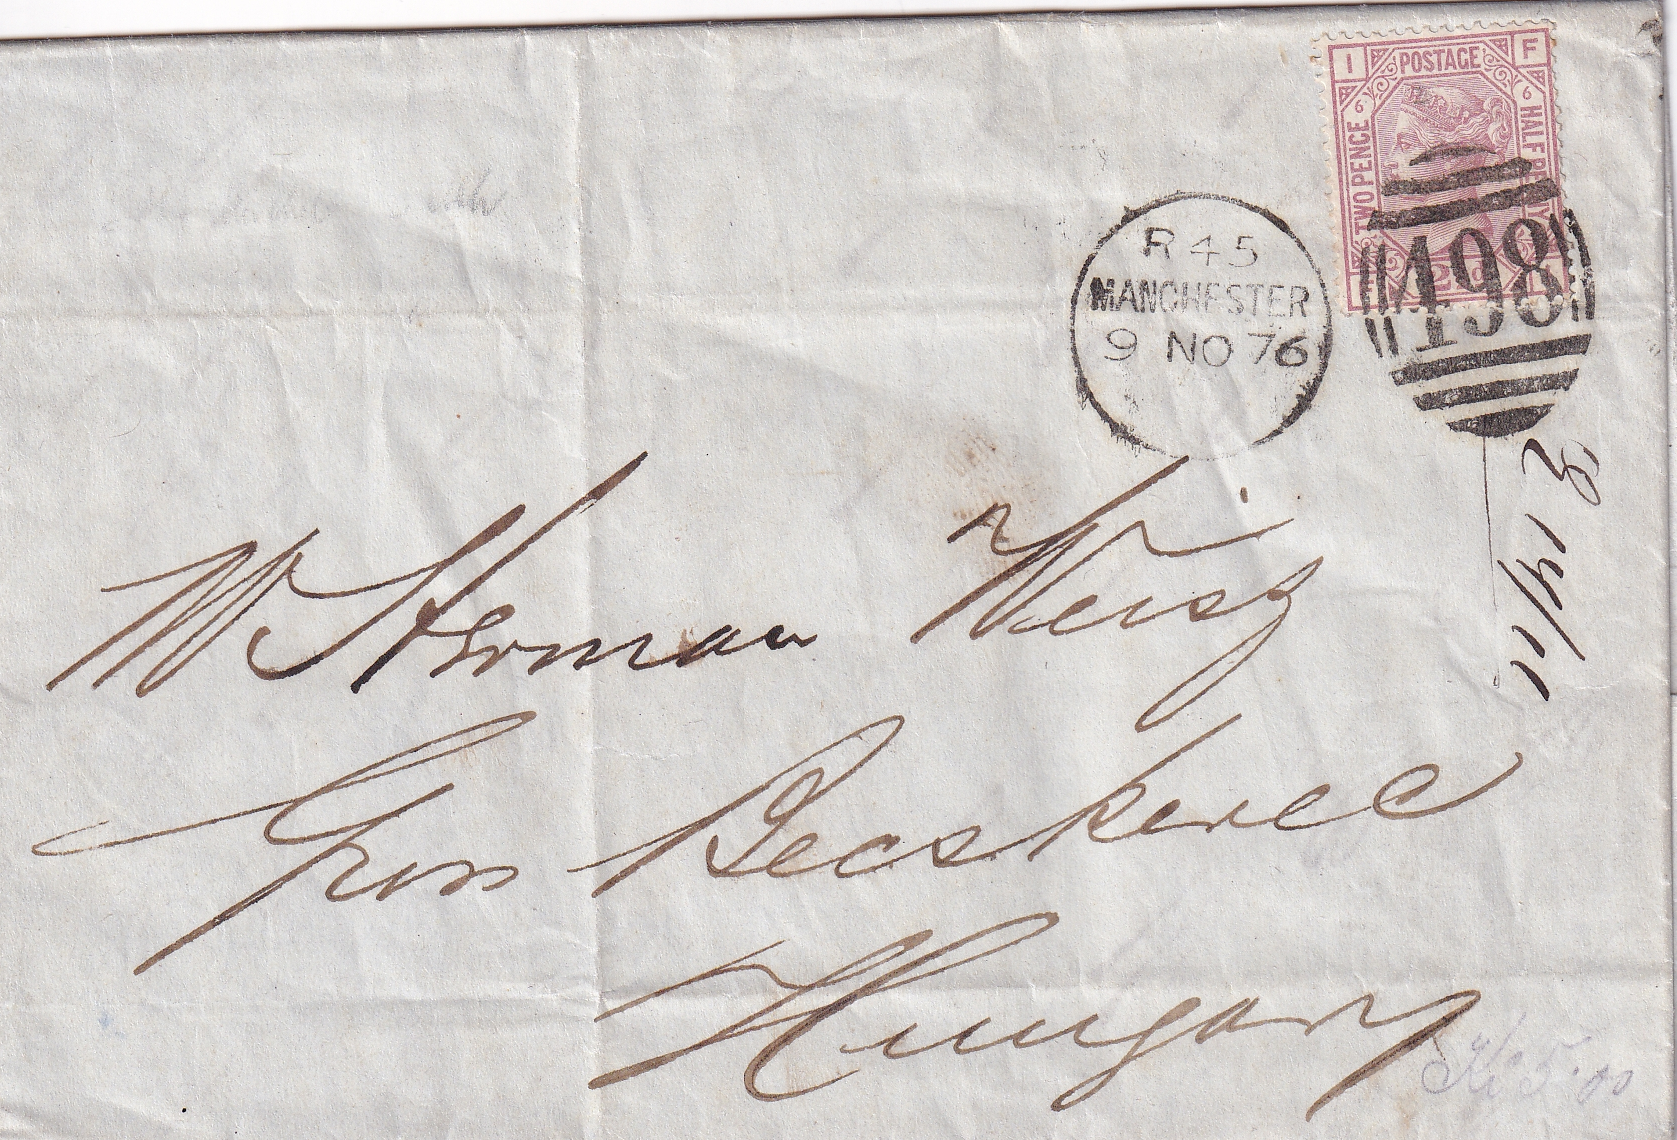 I POSTAGE F
6 6
TWO PENCE HALF PENNY
2½d
498
R 45
MANCHESTER
9 NO 76
14/11
M Herman Weisz
Gros Becskerec
Hungary